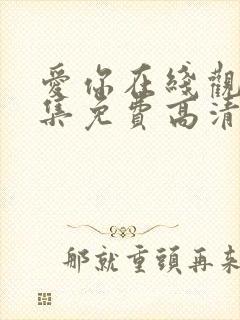 愛你在綫觀
集免費高清
那就重頭再來